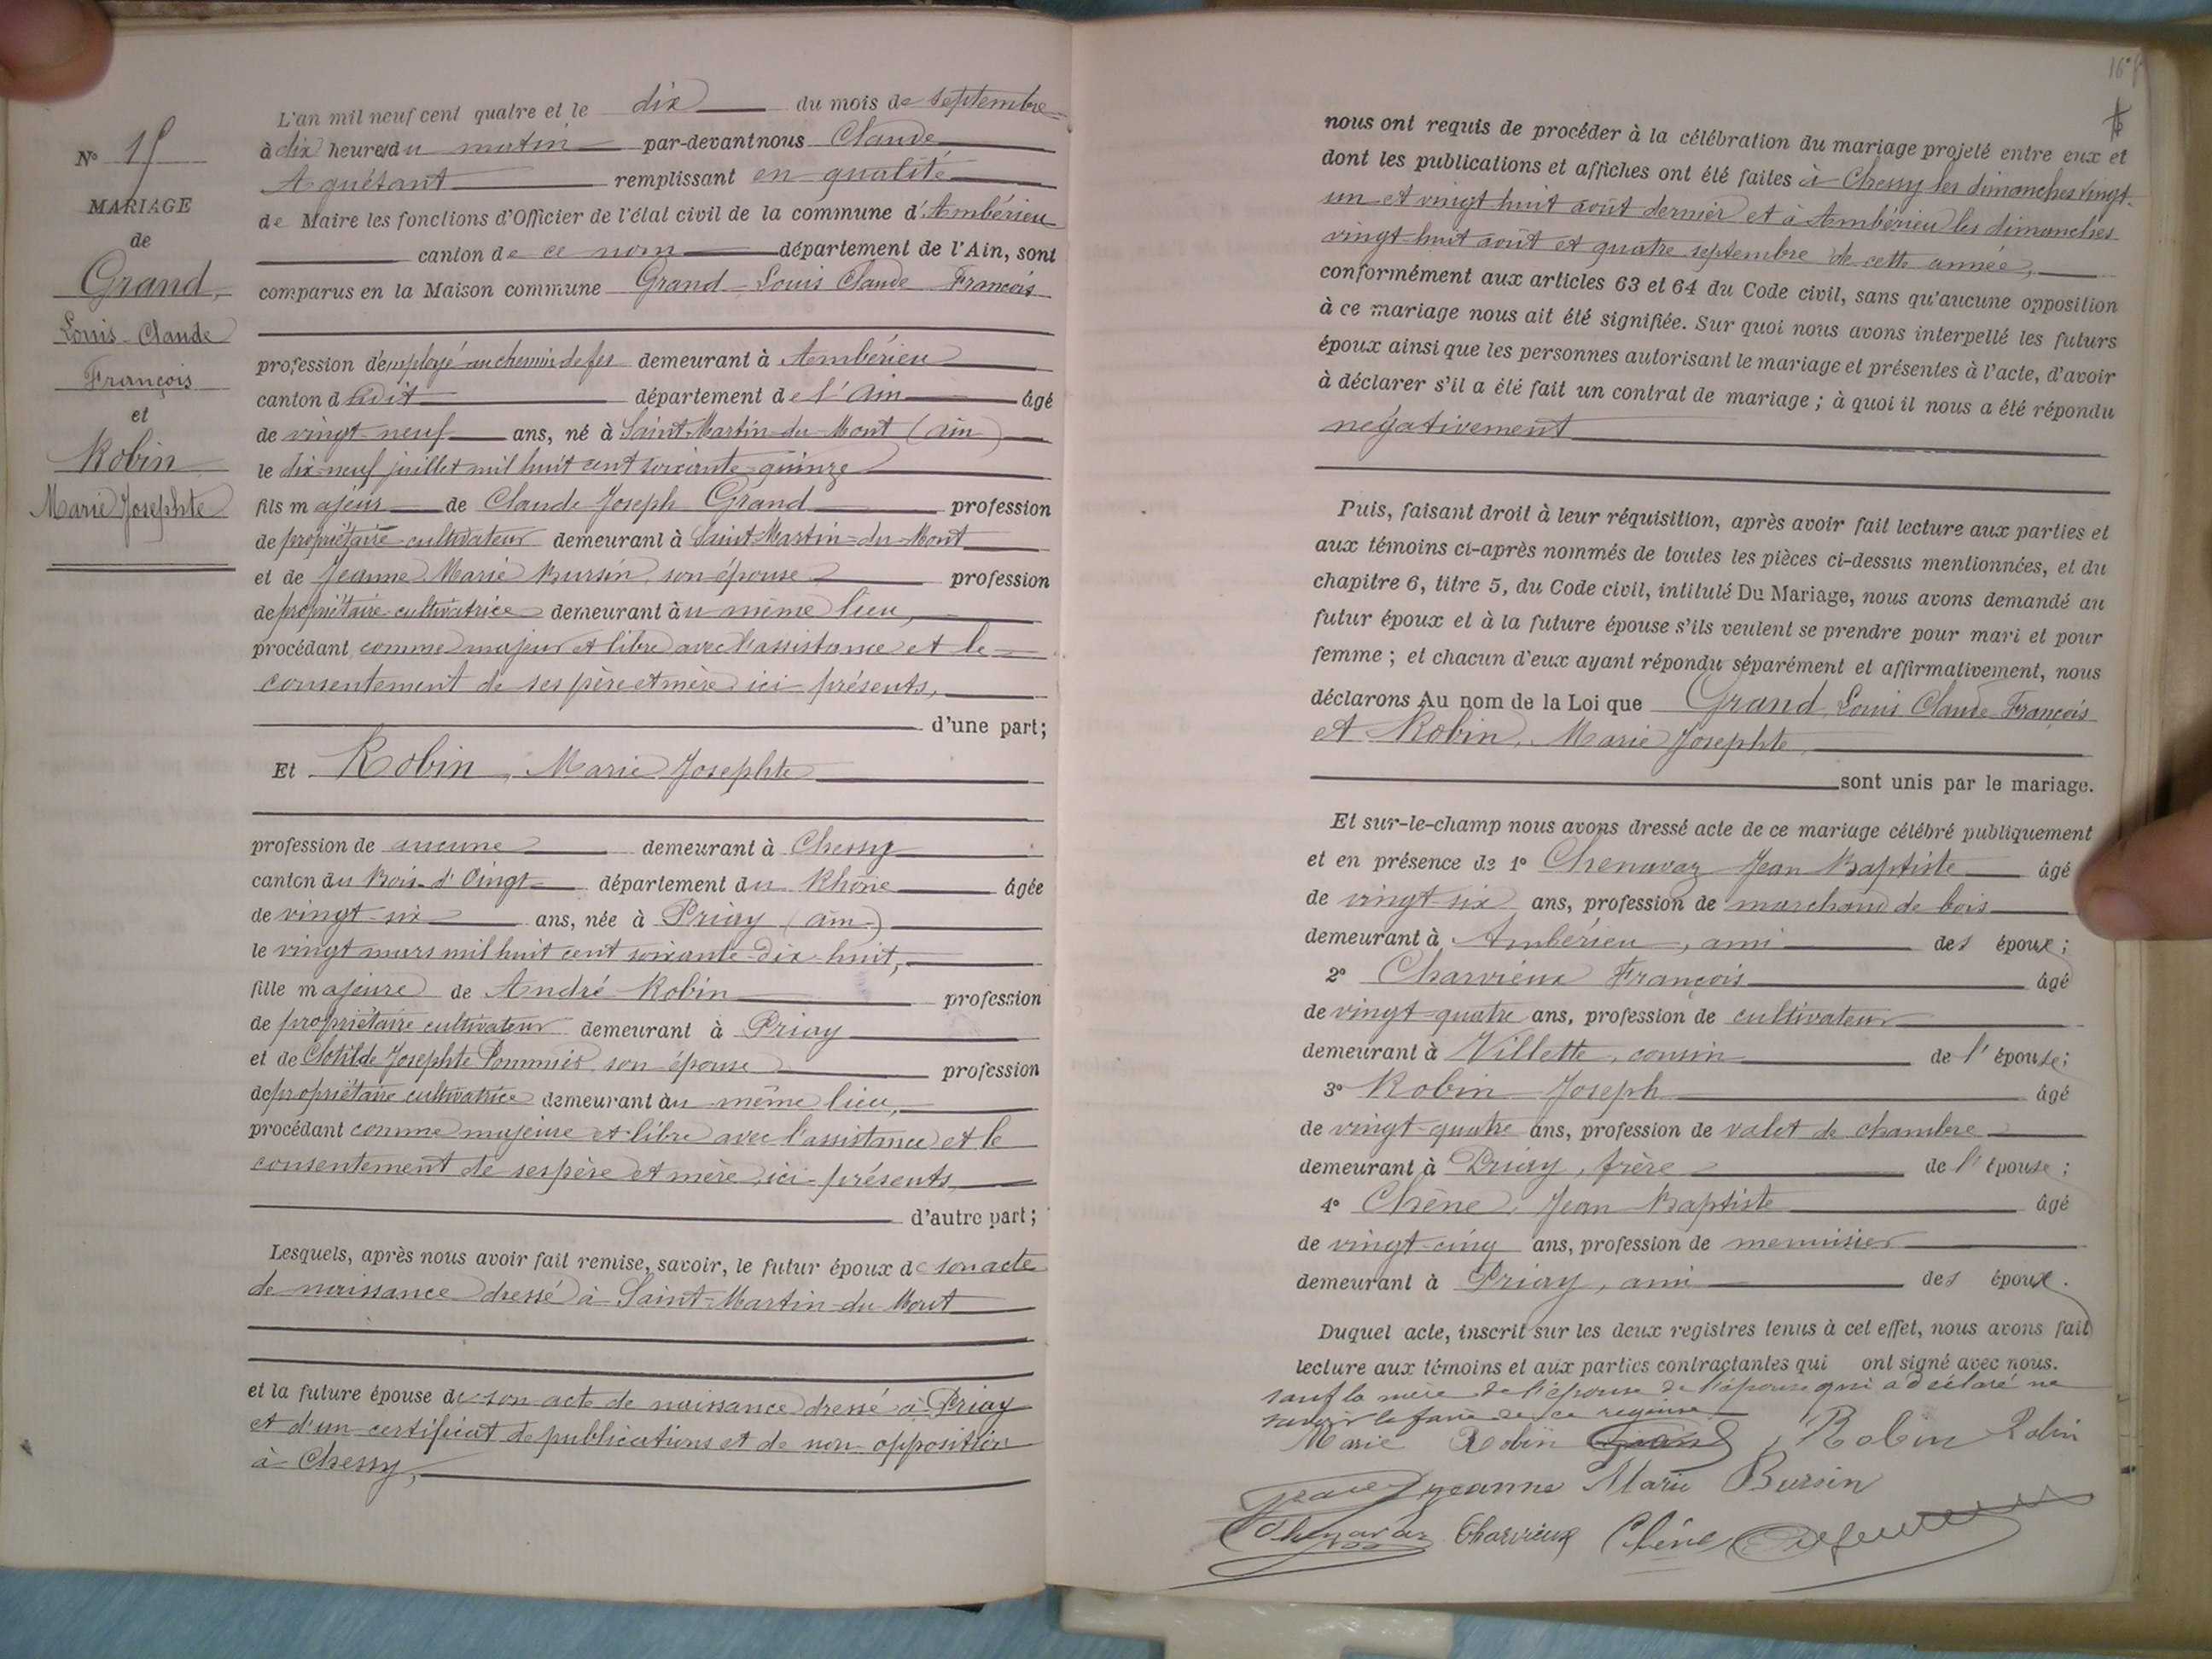 L'an mil neuf cent quatre et le dix du mois de septembre
à dix heures du matin par-devant nous Claude
Aguétant remplissant en qualité
de Maire les fonctions d'Officier de l'état civil de la commune d'Ambérieu
canton de ce nom département de l'Ain, sont
comparus en la Maison commune Grand Louis Claude François
profession d'employé au chemin de fer demeurant à Ambérieu
canton dudit département de l'Ain âgé
de vingt-neuf ans, né à Saint-Martin-du-Mont (Ain)
le dix-neuf juillet mil huit cent soixante-quinze
fils majeur de Claude Joseph Grand profession
de propriétaire-cultivateur demeurant à Saint-Martin-du-Mont
et de Jeanne Marie Bursin, son épouse profession
de propriétaire-cultivatrice demeurant au même lieu,
procédant comme majeur et libre avec l'assistance et le
consentement de ses père et mère ici présents,
d'une part;
Et Robin, Marie Josephte
profession de aucune demeurant à Chessy
canton du Bois-d'Oingt département du Rhône âgée
de vingt-six ans, née à Priay (Ain)
le vingt mars mil huit cent soixante-dix-huit,
fille majeure de André Robin profession
de propriétaire cultivateur demeurant à Priay
et de Clotilde Josephte Pommier, son épouse profession
de propriétaire cultivatrice demeurant au même lieu,
procédant comme majeure et libre avec l'assistance et le
consentement de ses père et mère, ici présents
d'autre part;
Lesquels, après nous avoir fait remise, savoir, le futur époux de son acte
de naissance dressé à Saint-Martin-du-Mont
et la future épouse de son acte de naissance dressé à Priay
et d'un certificat de publications et de non opposition
à Chessy,
N° 15
MARIAGE
de
Grand,
Louis-Claude
François
et
Robin
Marie Josephte
16
nous ont requis de procéder à la célébration du mariage projeté entre eux et
dont les publications et affiches ont été faites à Chessy les dimanches vingt-
un et vingt huit août dernier et à Ambérieu les dimanches
vingt-huit août et quatre septembre de cette année,
conformément aux articles 63 et 64 du Code civil, sans qu'aucune opposition
à ce mariage nous ait été signifiée. Sur quoi nous avons interpellé les futurs
époux ainsi que les personnes autorisant le mariage et présentes à l'acte, d'avoir
à déclarer s'il a été fait un contrat de mariage; à quoi il nous a été répondu
négativement
Puis, faisant droit à leur réquisition, après avoir fait lecture aux parties et
aux témoins ci-après nommés de toutes les pièces ci-dessus mentionnées, et du
chapitre 6, titre 5, du Code civil, intitulé Du Mariage, nous avons demandé au
futur époux et à la future épouse s'ils veulent se prendre pour mari et pour
femme; et chacun d'eux ayant répondu séparément et affirmativement, nous
déclarons Au nom de la Loi que Grand Louis Claude François
et Robin, Marie Josephte
sont unis par le mariage.
Et sur-le-champ nous avons dressé acte de ce mariage célébré publiquement
et en présence de 1° Chenavaz Jean Baptiste âgé
de vingt-six ans, profession de marchand de bois
demeurant à Ambérieu, ami des époux;
2° Charvieux François âgé
de vingt-quatre ans, profession de cultivateur
demeurant à Villette, cousin de l'épouse;
3° Robin Joseph âgé
de vingt-quatre ans, profession de valet de chambre
demeurant à Priay, frère de l'épouse;
4° Chêne, Jean Baptiste âgé
de vingt-cinq ans, profession de menuisier
demeurant à Priay, ami des époux.
Duquel acte, inscrit sur les deux registres tenus à cet effet, nous avons fait
lecture aux témoins et aux parties contractantes qui ont signé avec nous.
sauf la mère de l'épouse de l'épouse qui a déclaré ne
savoir le faire de ce requise
Marie Robin Grand Robin Robin
Grand Jeanne Marie Bursin
Chenavaz Charvieux Chêne